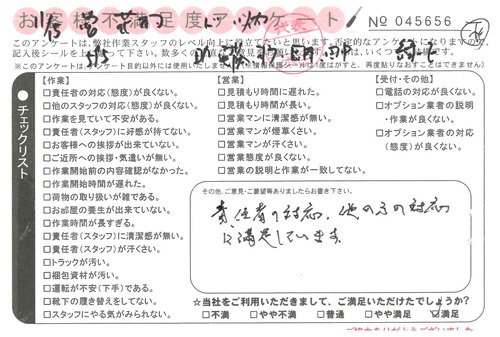 お客様不満足度アンケート
No 045656
このアンケートは、弊社作業スタッフのレベル向上に役立てたいと思います。否定的なアンケートになりますので、
チェックリスト
【作業】
□責任者の対応(態度)が良くない。
□他のスタッフの対応(態度)が良くない。
□作業を見ていて不安がある。
□責任者(スタッフ)に好感が持てない。
□お客様への挨拶が出来ていない。
□ご近所への挨拶・気遣いが無い。
□作業開始前の内容確認がなかった。
□作業開始時間が遅れた。
□荷物の取り扱いが雑である。
□お部屋の養生が出来ていない。
□作業時間が長すぎる。
□責任者(スタッフ)に清潔感が無い。
□責任者(スタッフ)が汗くさい。
□トラックが汚い。
□梱包資材が汚い。
□運転が不安(下手)である。
□靴下の履き替えをしてない。
□スタッフにやる気がみられない。
【営業】
□見積もり時間に遅れた。
□見積もり時間が長い。
□営業マンに清潔感が無い。
□営業マンが煙草くさい。
□営業マンが汗くさい。
□営業態度が良くない。
□営業の説明と作業が一致してない。
【受付・その他】
□電話の対応が良くない。
□オプション業者の説明
・作業が良くない。
□オプション業者の対応
(態度)が良くない。
その他、ご意見・ご要望等ありましたらお書き下さい。
責任者の対応、他の方の対応
に満足しています。
☆当社をご利用いただきまして、ご満足いただけたでしょうか?
□不満 □やや不満 □普通 □やや満足 ☑満足